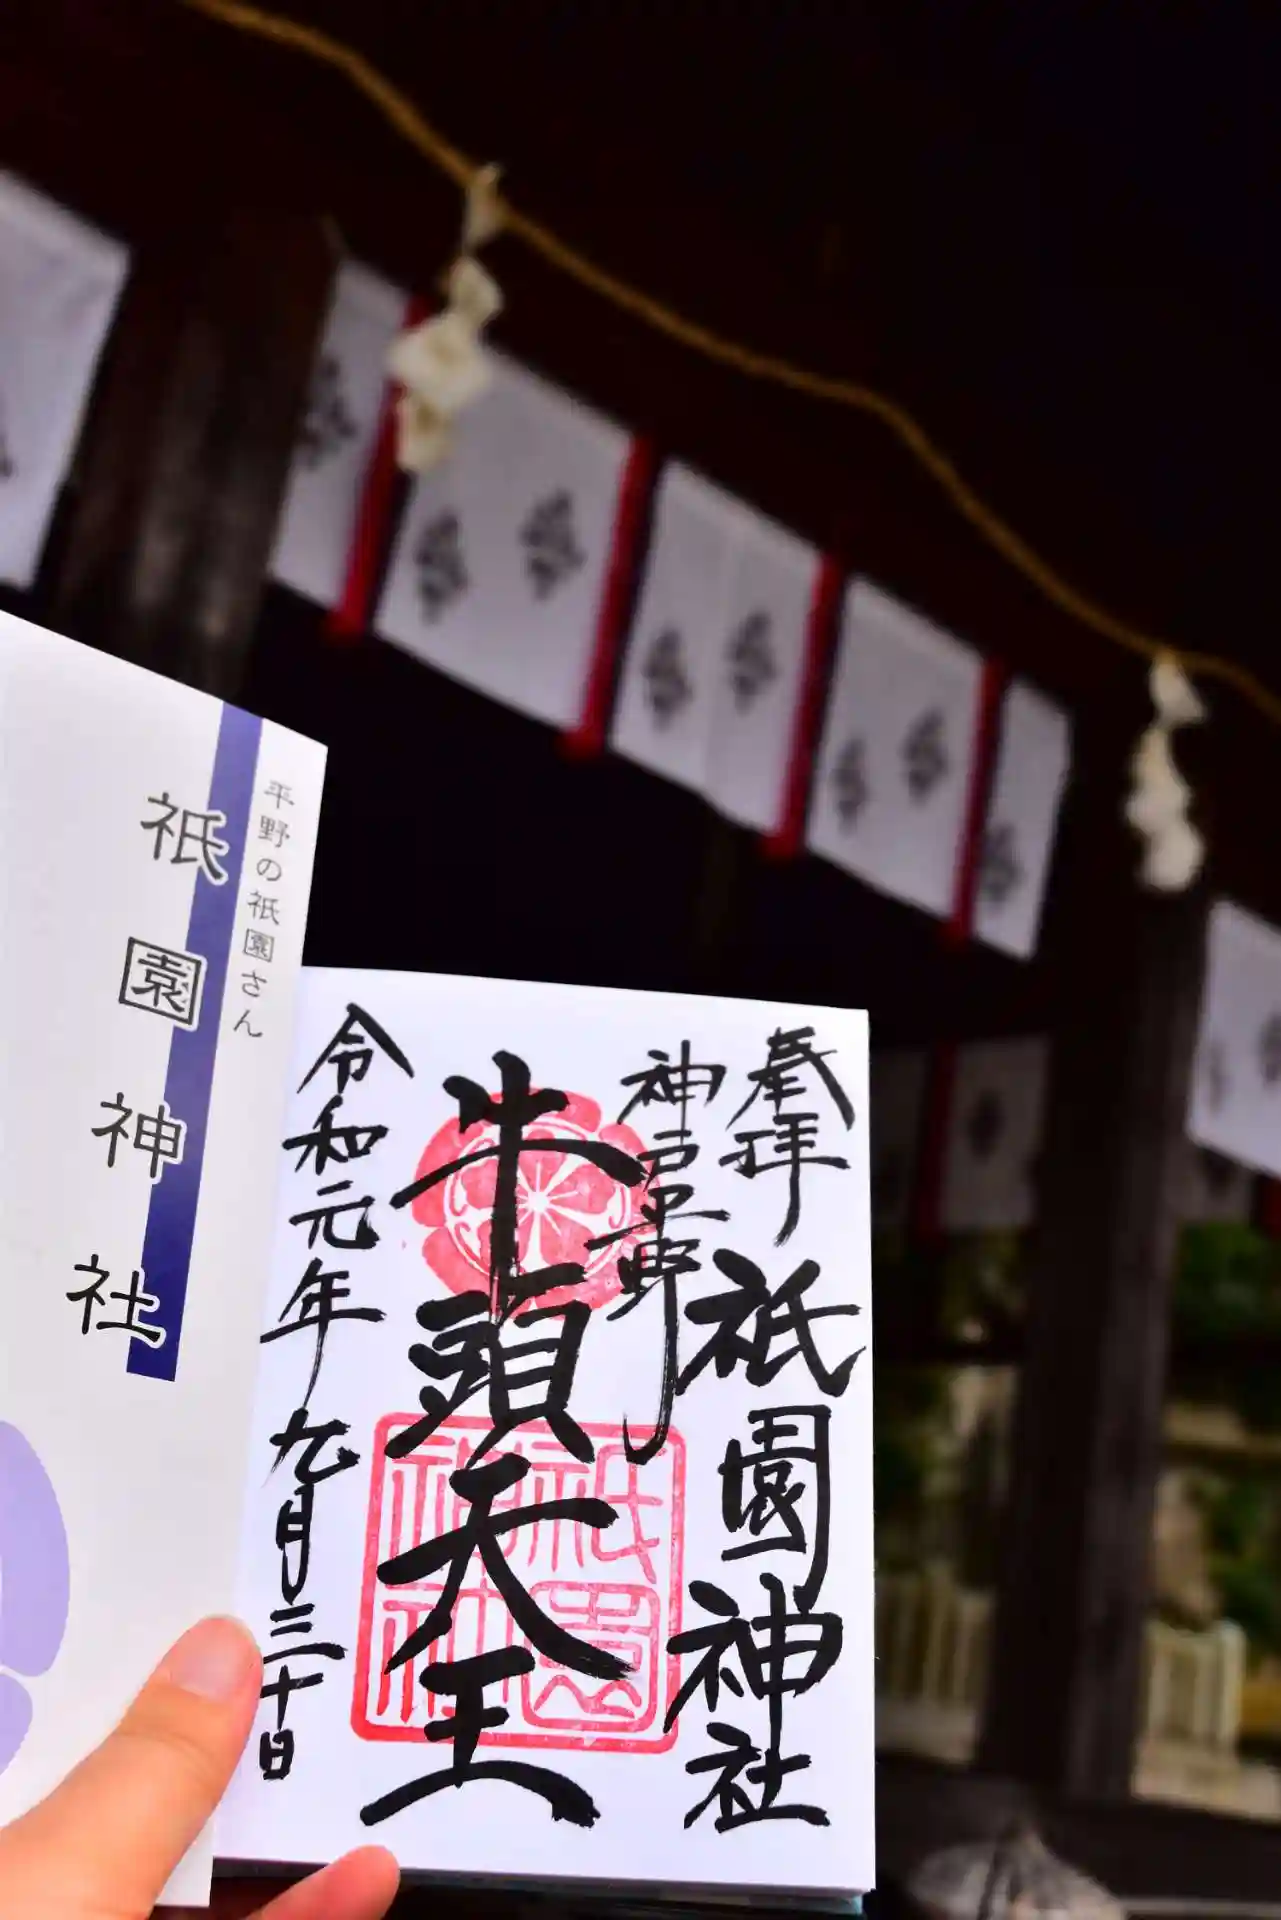 平野の祇園さん
祇園神社
奉拝
祇園神社
神戸平野
牛頭天王
令和元年九月三十日
祇園
神社